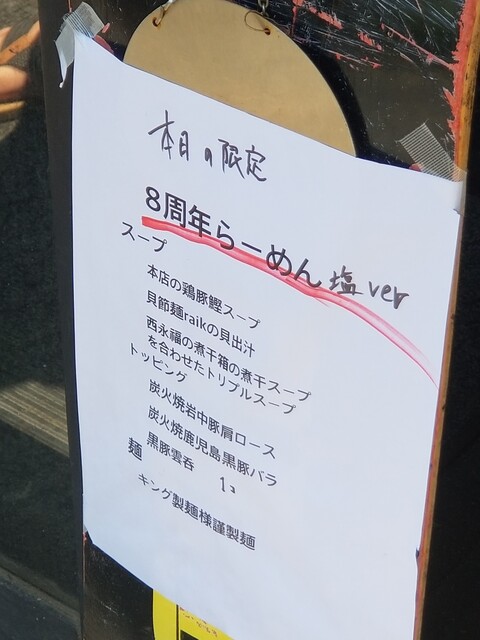 本日の限定
8周年らーめん 塩 ver
スープ
本店の鶏豚鰹スープ
貝節麺raikの貝出汁
西永福の煮干箱の煮干スープ
を合わせたトリプルスープ
トッピング
炭火焼岩中豚肩ロース
炭火焼鹿児島黒豚バラ
黒豚雲呑 1コ
麺
キング製麺様謹製麺